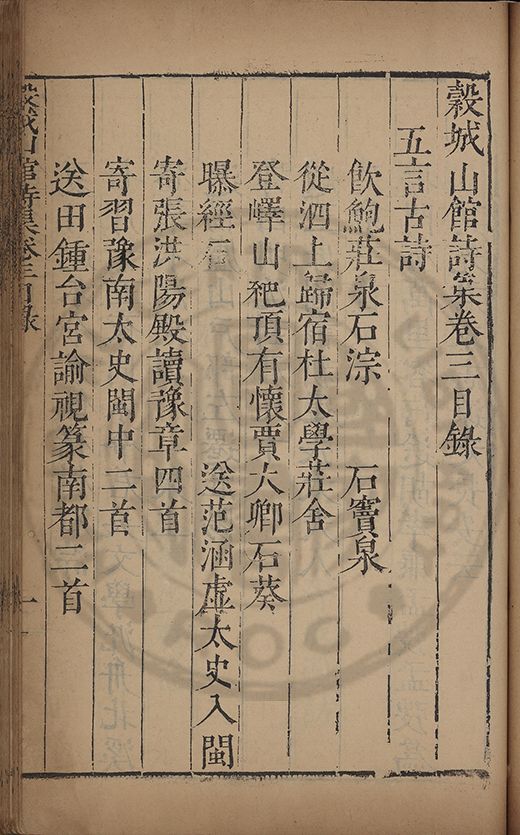 穀城山館詩集卷三目錄
五言古詩
飲鮑莊泉石淙　石竇泉
從泗上歸宿杜太學莊舍
登嶧山絶頂有懷賈大卿石葵
曝經石　送范涵虛太史入閩
寄張洪陽殿讀豫章四首
寄習豫南太史閩中二首
送田鍾台宮諭視篆南都二首
穀城山館詩集卷三目錄
一